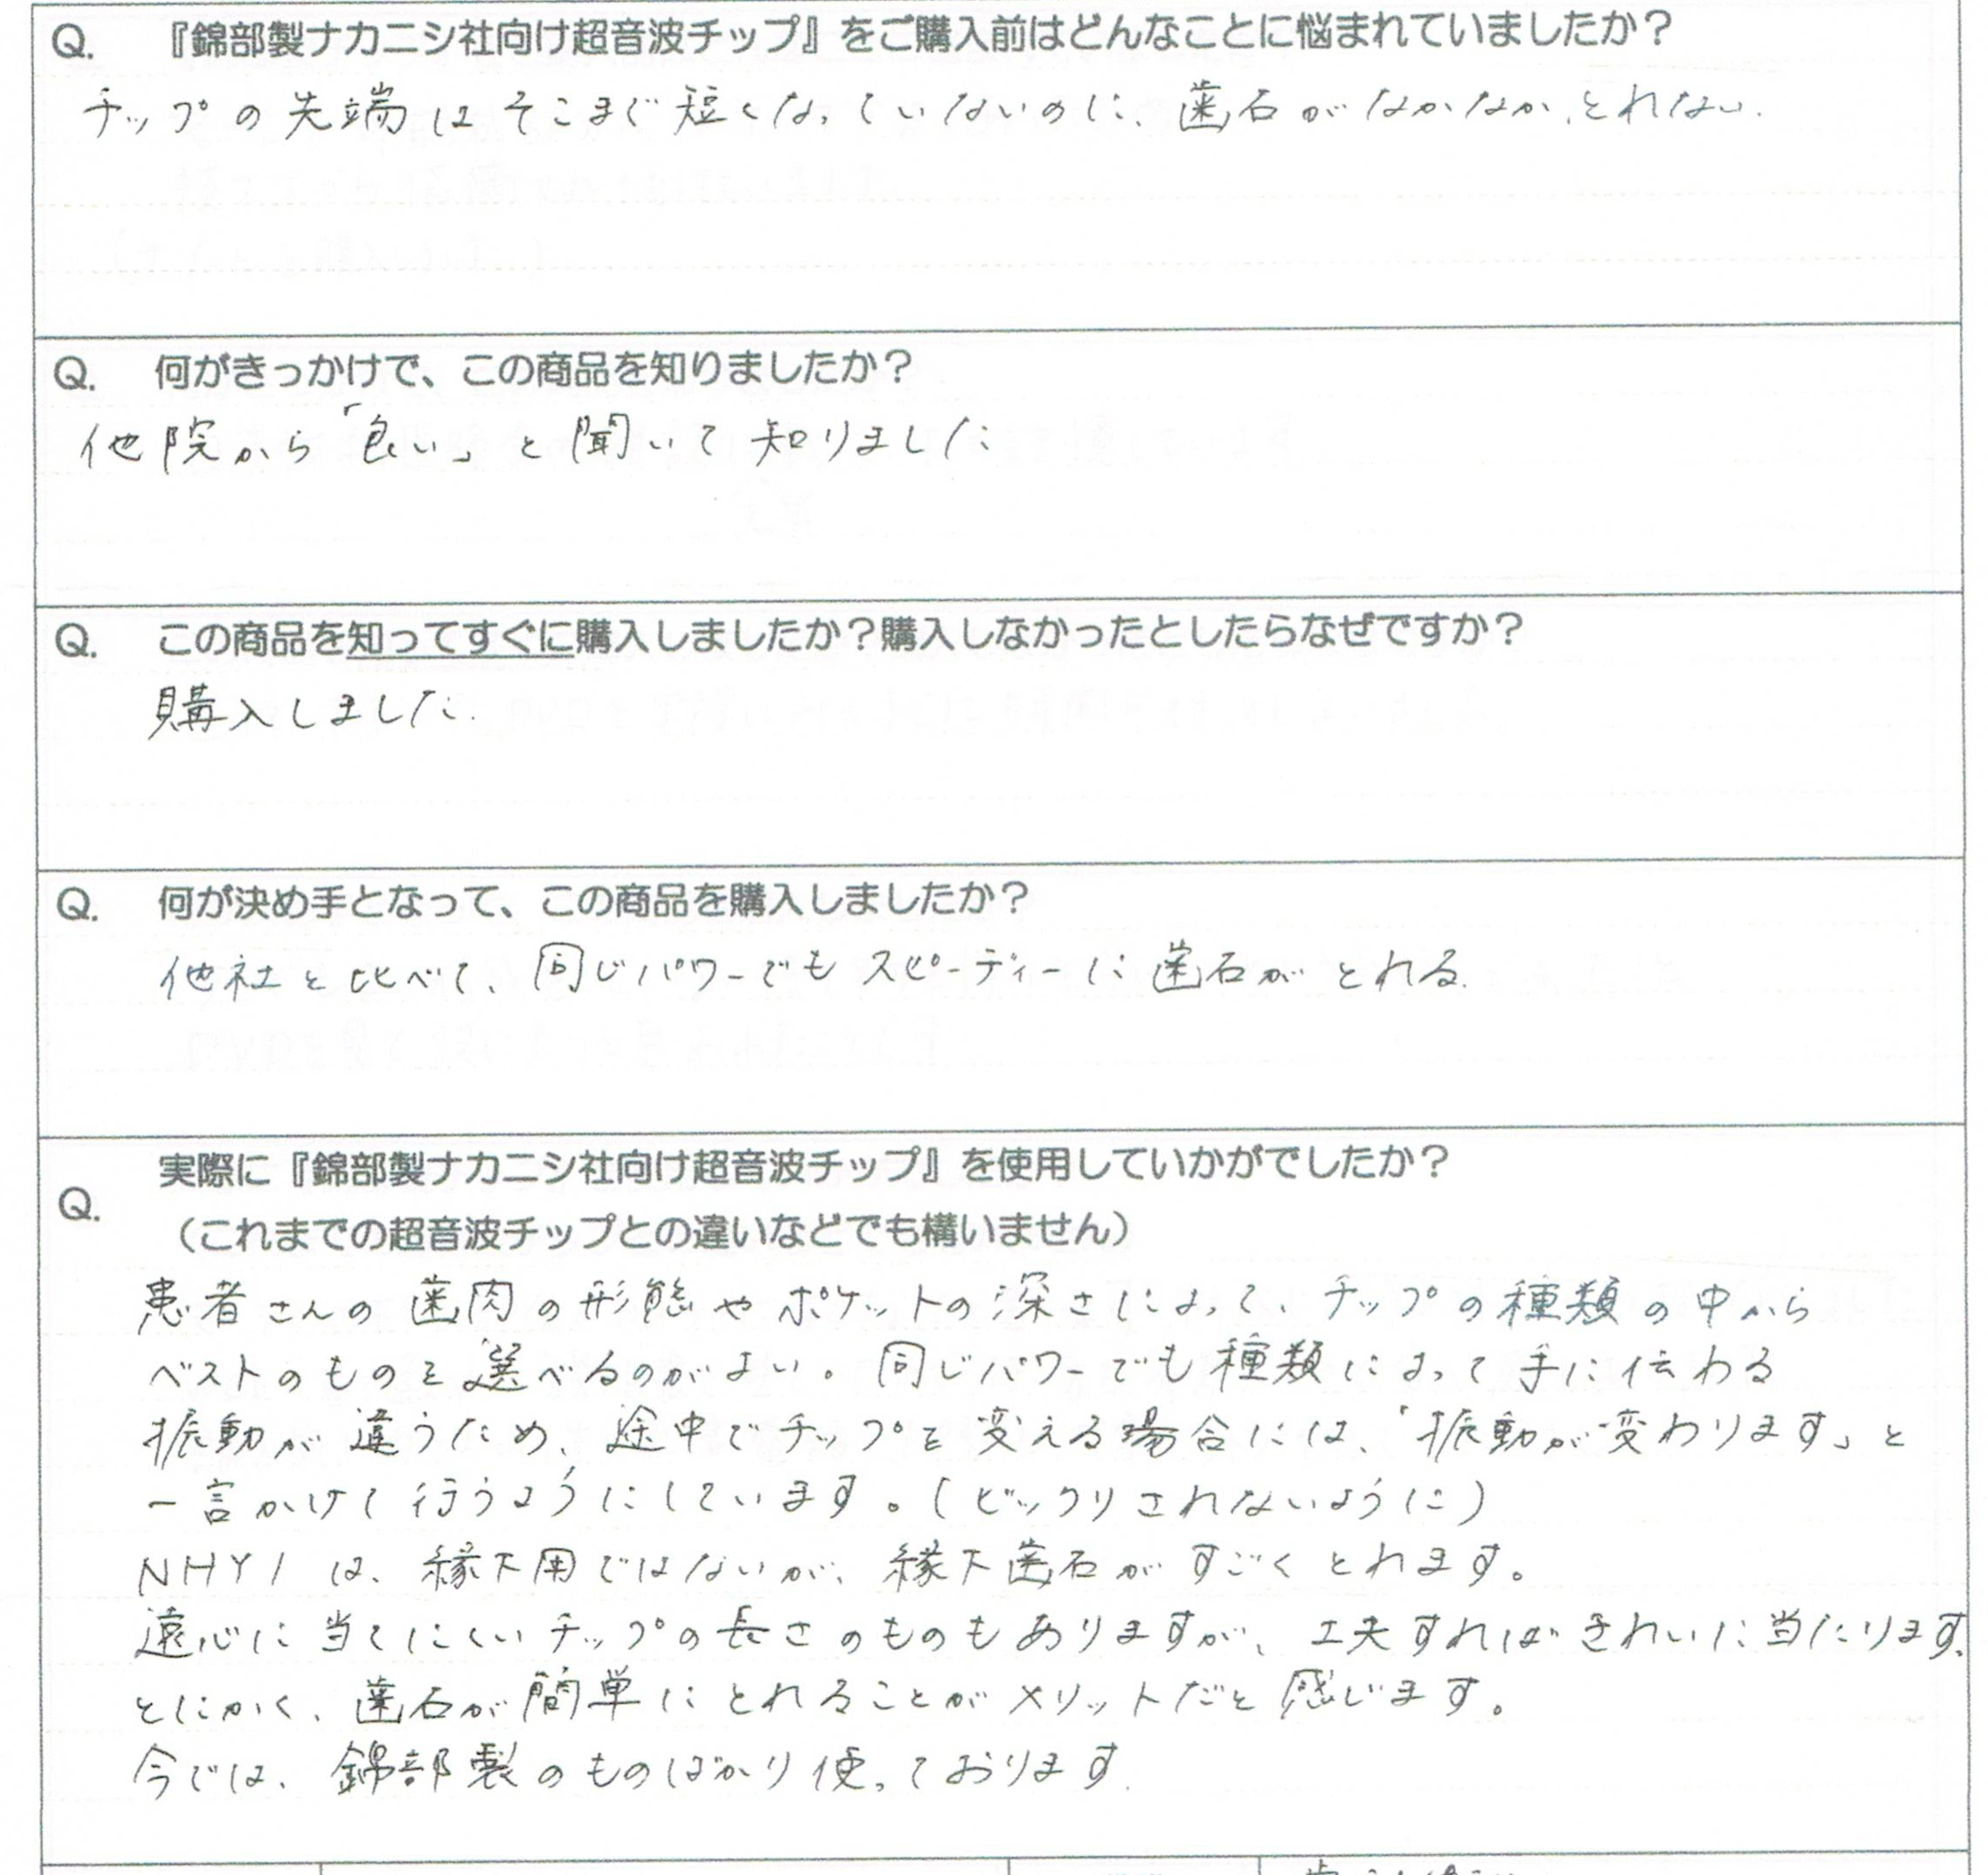 Q. 『錦部製ナカニシ社向け超音波チップ』をご購入前はどんなことに悩まれていましたか？
チップの先端はそこまで短くなっていないのに、歯石がなかなか、とれない.
Q. 何がきっかけで、この商品を知りましたか？
他院から「良い」と聞いて知りました
Q. この商品を知ってすぐに購入しましたか？購入しなかったとしたらなぜですか？
購入しました.
Q. 何が決め手となって、この商品を購入しましたか？
他社と比べて、同じパワーでもスピーディーに歯石がとれる.
Q. 実際に『錦部製ナカニシ社向け超音波チップ』を使用していかがでしたか？
（これまでの超音波チップとの違いなどでも構いません）
患者さんの歯肉の形態やポケットの深さによって、チップの種類の中から
ベストのものを選べるのがよい。同じパワーでも種類によって手に伝わる
振動が違うため、途中でチップを変える場合には、「振動が変わります」と
一言かけて行うようにしています。(ビックリされないように)
NHY1は、縁下用ではないが、縁下歯石がすごくとれます。
遠心に当てにくいチップの長さのものもありますが、工夫すればきれいに当たります.
とにかく、歯石が簡単にとれることがメリットだと感じます。
今では、錦部製のものばかり使っております.